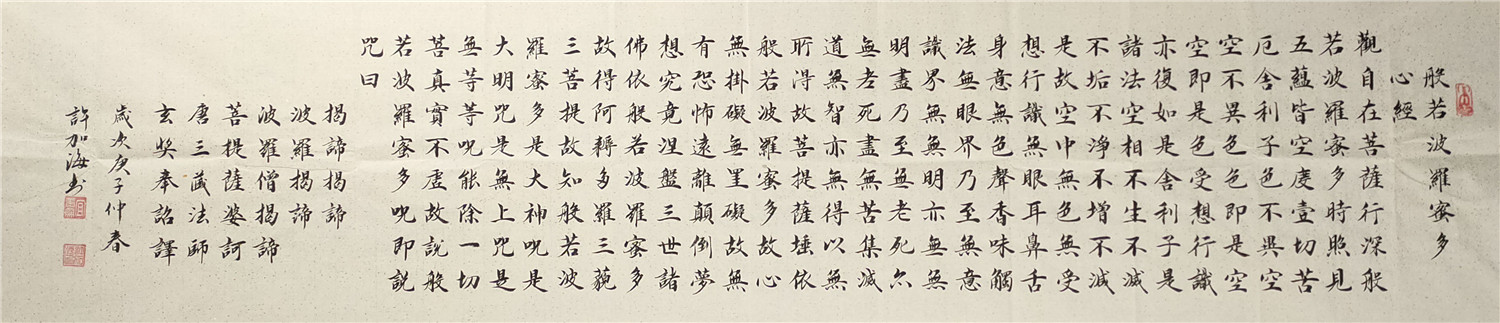 般若波羅蜜多
心經
觀自在菩薩行深般
若波羅蜜多時照見
五蘊皆空度壹切苦
厄舍利子色不異空
空不異色色即是空
空即是色受想行識
亦復如是舍利子是
諸法空相不生不滅
不垢不淨不增不減
是故空中無色無受
想行識無眼耳鼻舌
身意無色聲香味觸
法無眼界乃至無意
識界無無明亦無無
明盡乃至無老死亦
無老死盡無苦集滅
道無智亦無得以無
所得故菩提薩埵依
般若波羅蜜多故心
無掛礙無罣礙故無
有恐怖遠離顛倒夢
想究竟涅盤三世諸
佛依般若波羅蜜多
故得阿耨多羅三藐
三菩提故知般若波
羅蜜多是大神呪是
大明咒是無上咒是
無等等呪能除一切
菩真實不虛故說般
若波羅蜜多呪即說
咒曰
揭諦揭諦
波羅揭諦
波羅僧揭諦
菩提薩婆訶
唐三藏法師
玄奘奉詔譯
歲次庚子仲春
許加海書